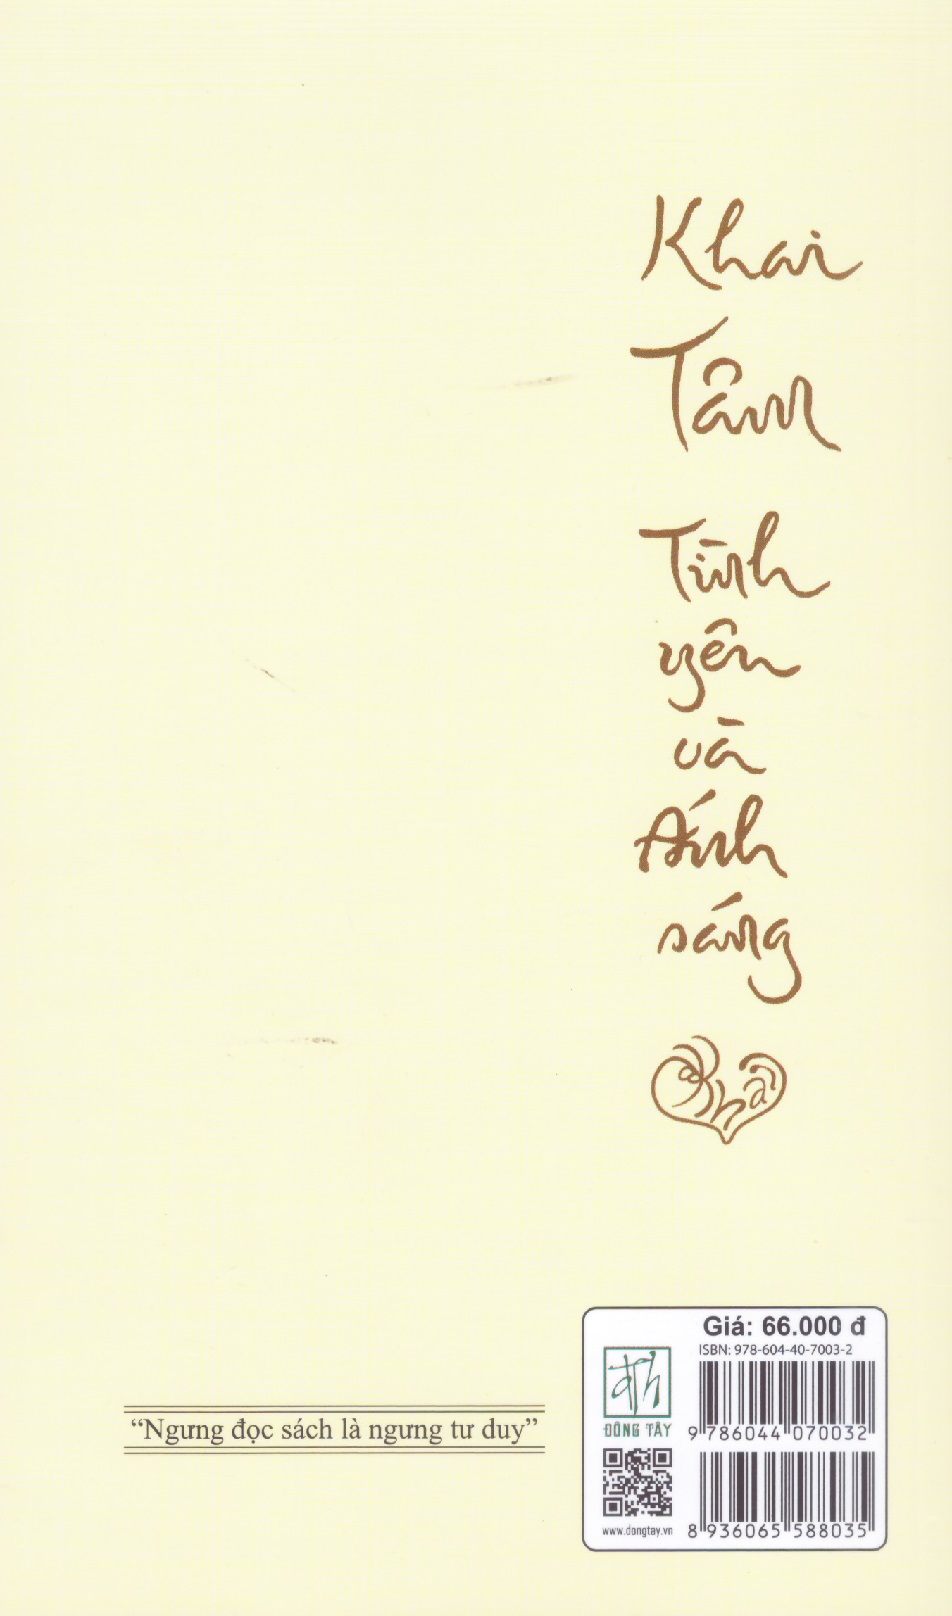 Khai
Tâm
Tình
yêu
và
Ánh
sáng
Giá: 66.000 đ
ISBN: 978-604-40-7003-2
ĐÔNG TÂY
9 786044 070032
“Ngưng đọc sách là ngưng tư duy”
www.dongtay.vn
8 936065 588035